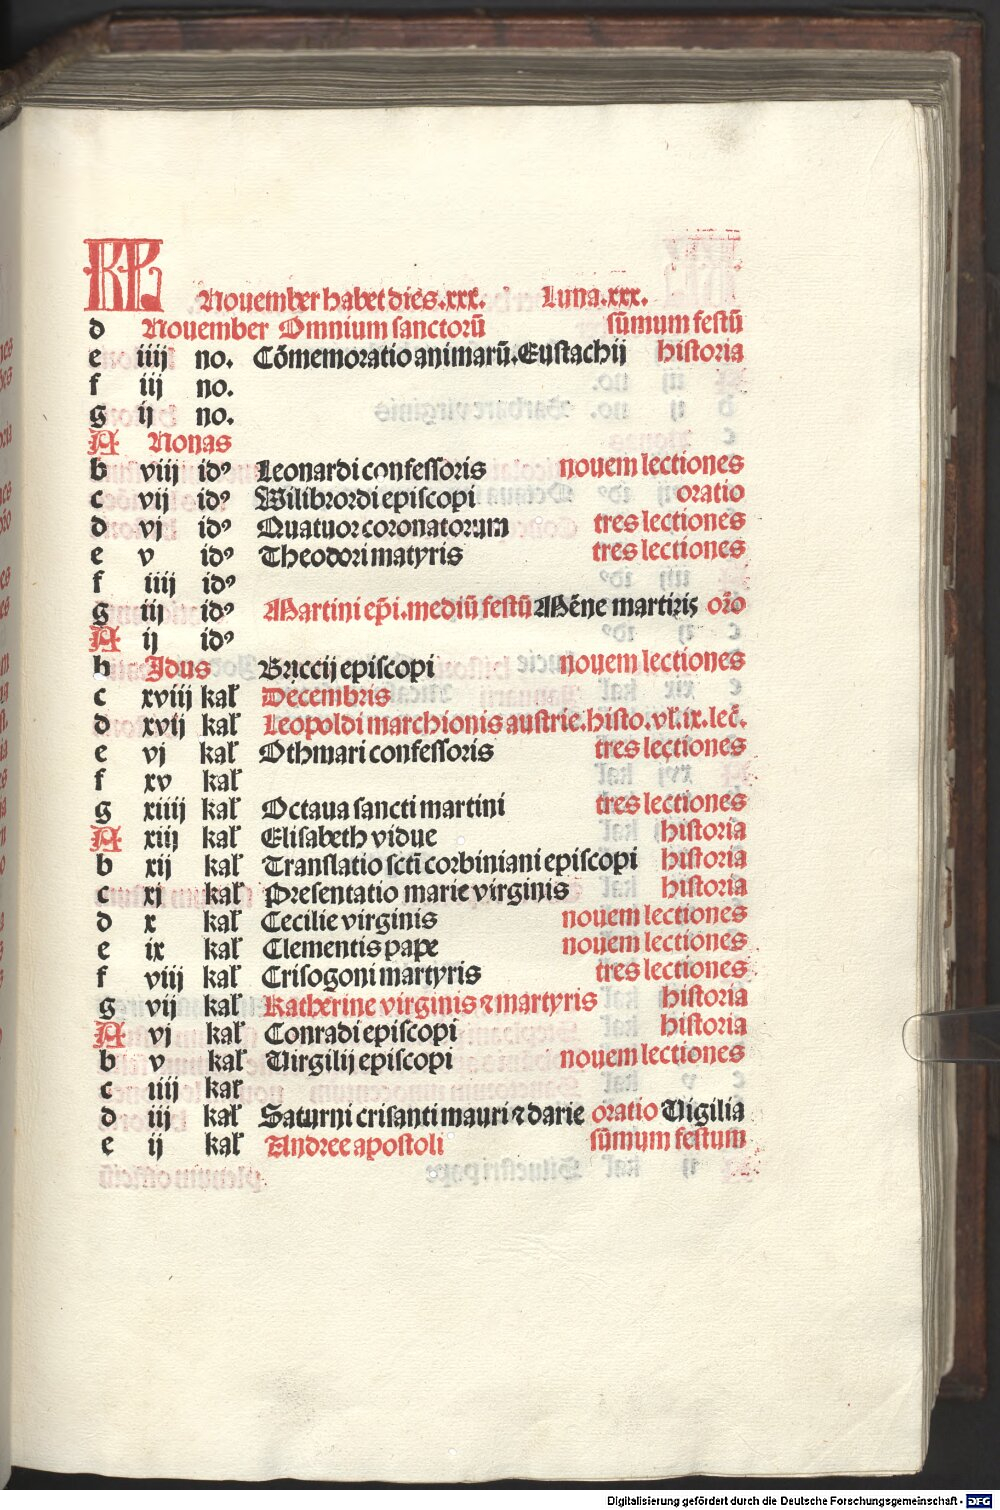 KL
Nouember habet dies.xxx. Luna.xxx.
d Nouember Omnium sanctorū sūmum festū
e iiij no. Cōmemoratio animarū.Eustachij historia
f iij no.
g ij no.
A Nonas
b viij idꝰ Leonardi confessoris nouem lectiones
c vij idꝰ Wilibrordi episcopi oratio
d vj idꝰ Quatuor coronatorum tres lectiones
e v idꝰ Theodori matyris tres lectiones
f iiij idꝰ
g iij idꝰ Martini ep̄i.mediū festū Mēne martiris oro
A ij idꝰ
b Idus Briccij episcopi nouem lectiones
c xviij kał Decembris
d xvij kał Leopoldi marchionis austrie.histo.vł.ix.lec̄.
e vj kał Othmari confessoris tres lectiones
f xv kał
g xiiij kał Octaua sancti martini tres lectiones
A xiij kał Elisabeth vidue historia
b xij kał Translatio sctī corbiniani episcopi historia
c xj kał Presentatio marie virginis historia
d x kał Cecilie virginis nouem lectiones
e ix kał Clementis pape nouem lectiones
f viij kał Crisogoni martyris tres lectiones
g vij kał Katherine virginis ⁊ martyris historia
A vj kał Conradi episcopi historia
b v kał Virgilij episcopi nouem lectiones
c iiij kał
d iij kał Saturni crisanti mauri ⁊ darie oratio Vigilia
e ij kał Andree apostoli sūmum festum
Digitalisierung gefördert durch die Deutsche Forschungsgemeinschaft - DFG